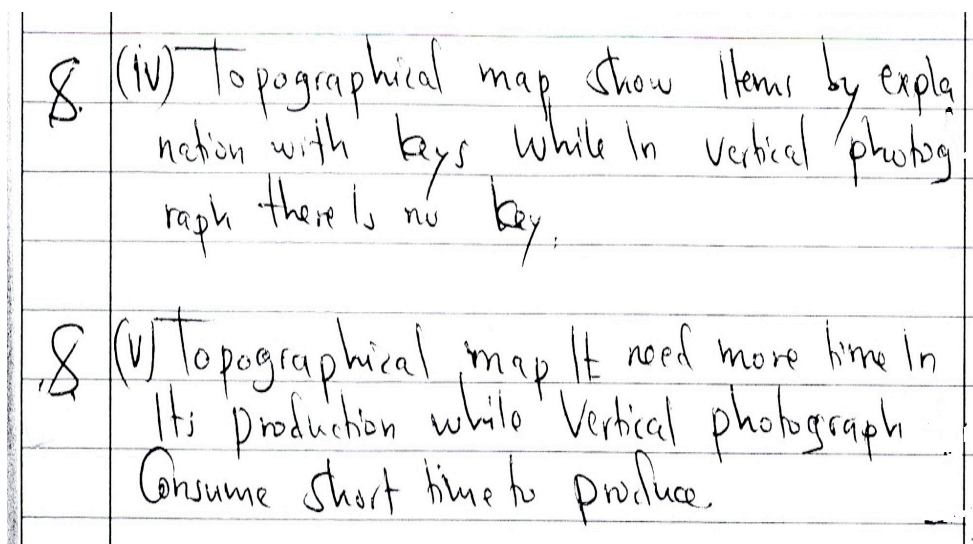 8. (iv) Topographical map show Items by expla
nation with keys while In vertical photog
raph there Is no key.
8 (v) Topographical map It need more time In
Its production while Vertical photograph
Consume short time to produce.